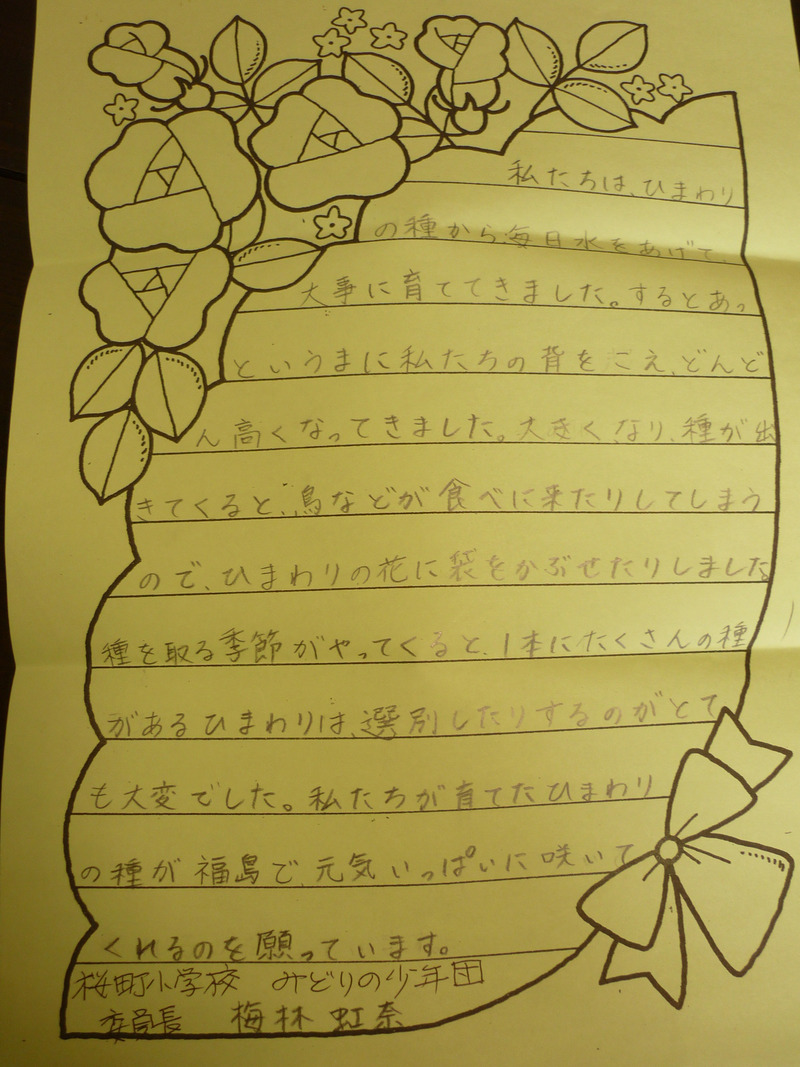 私たちは、ひまわり
の種から毎日水をあげて、
大事に育ててきました。するとあっ
というまに私たちの背をこえ、どんど
ん高くなってきました。大きくなり、種が出
きてくると、鳥などが食べに来たりしてしまう
ので、ひまわりの花に袋をかぶせたりしました
種を取る季節がやってくると、1本にたくさんの種
があるひまわりは、選別したりするのがとて
も大変でした。私たちが育てたひまわり
の種が福島で、元気いっぱいに咲いて
くれるのを願っています。
桜町小学校 みどりの少年団
委員長 梅林虹奈